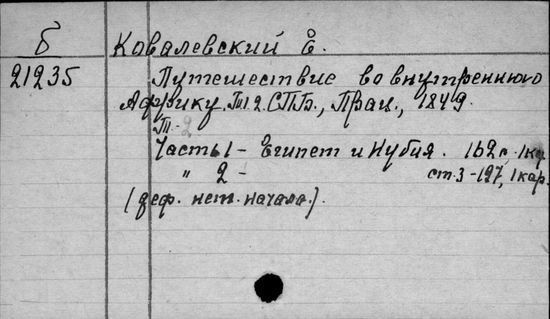 Б Ковалевский Е.
21235 Путешествие во внутреннюю
Африку. Т1 2. СПБ., Прац., 1849.
Т. 2
Часть 1 - Египет и Нубия. 162 с. 1 кар
" 2 - ст. 3-197, 1 кар.
(деф. нет. начала.).